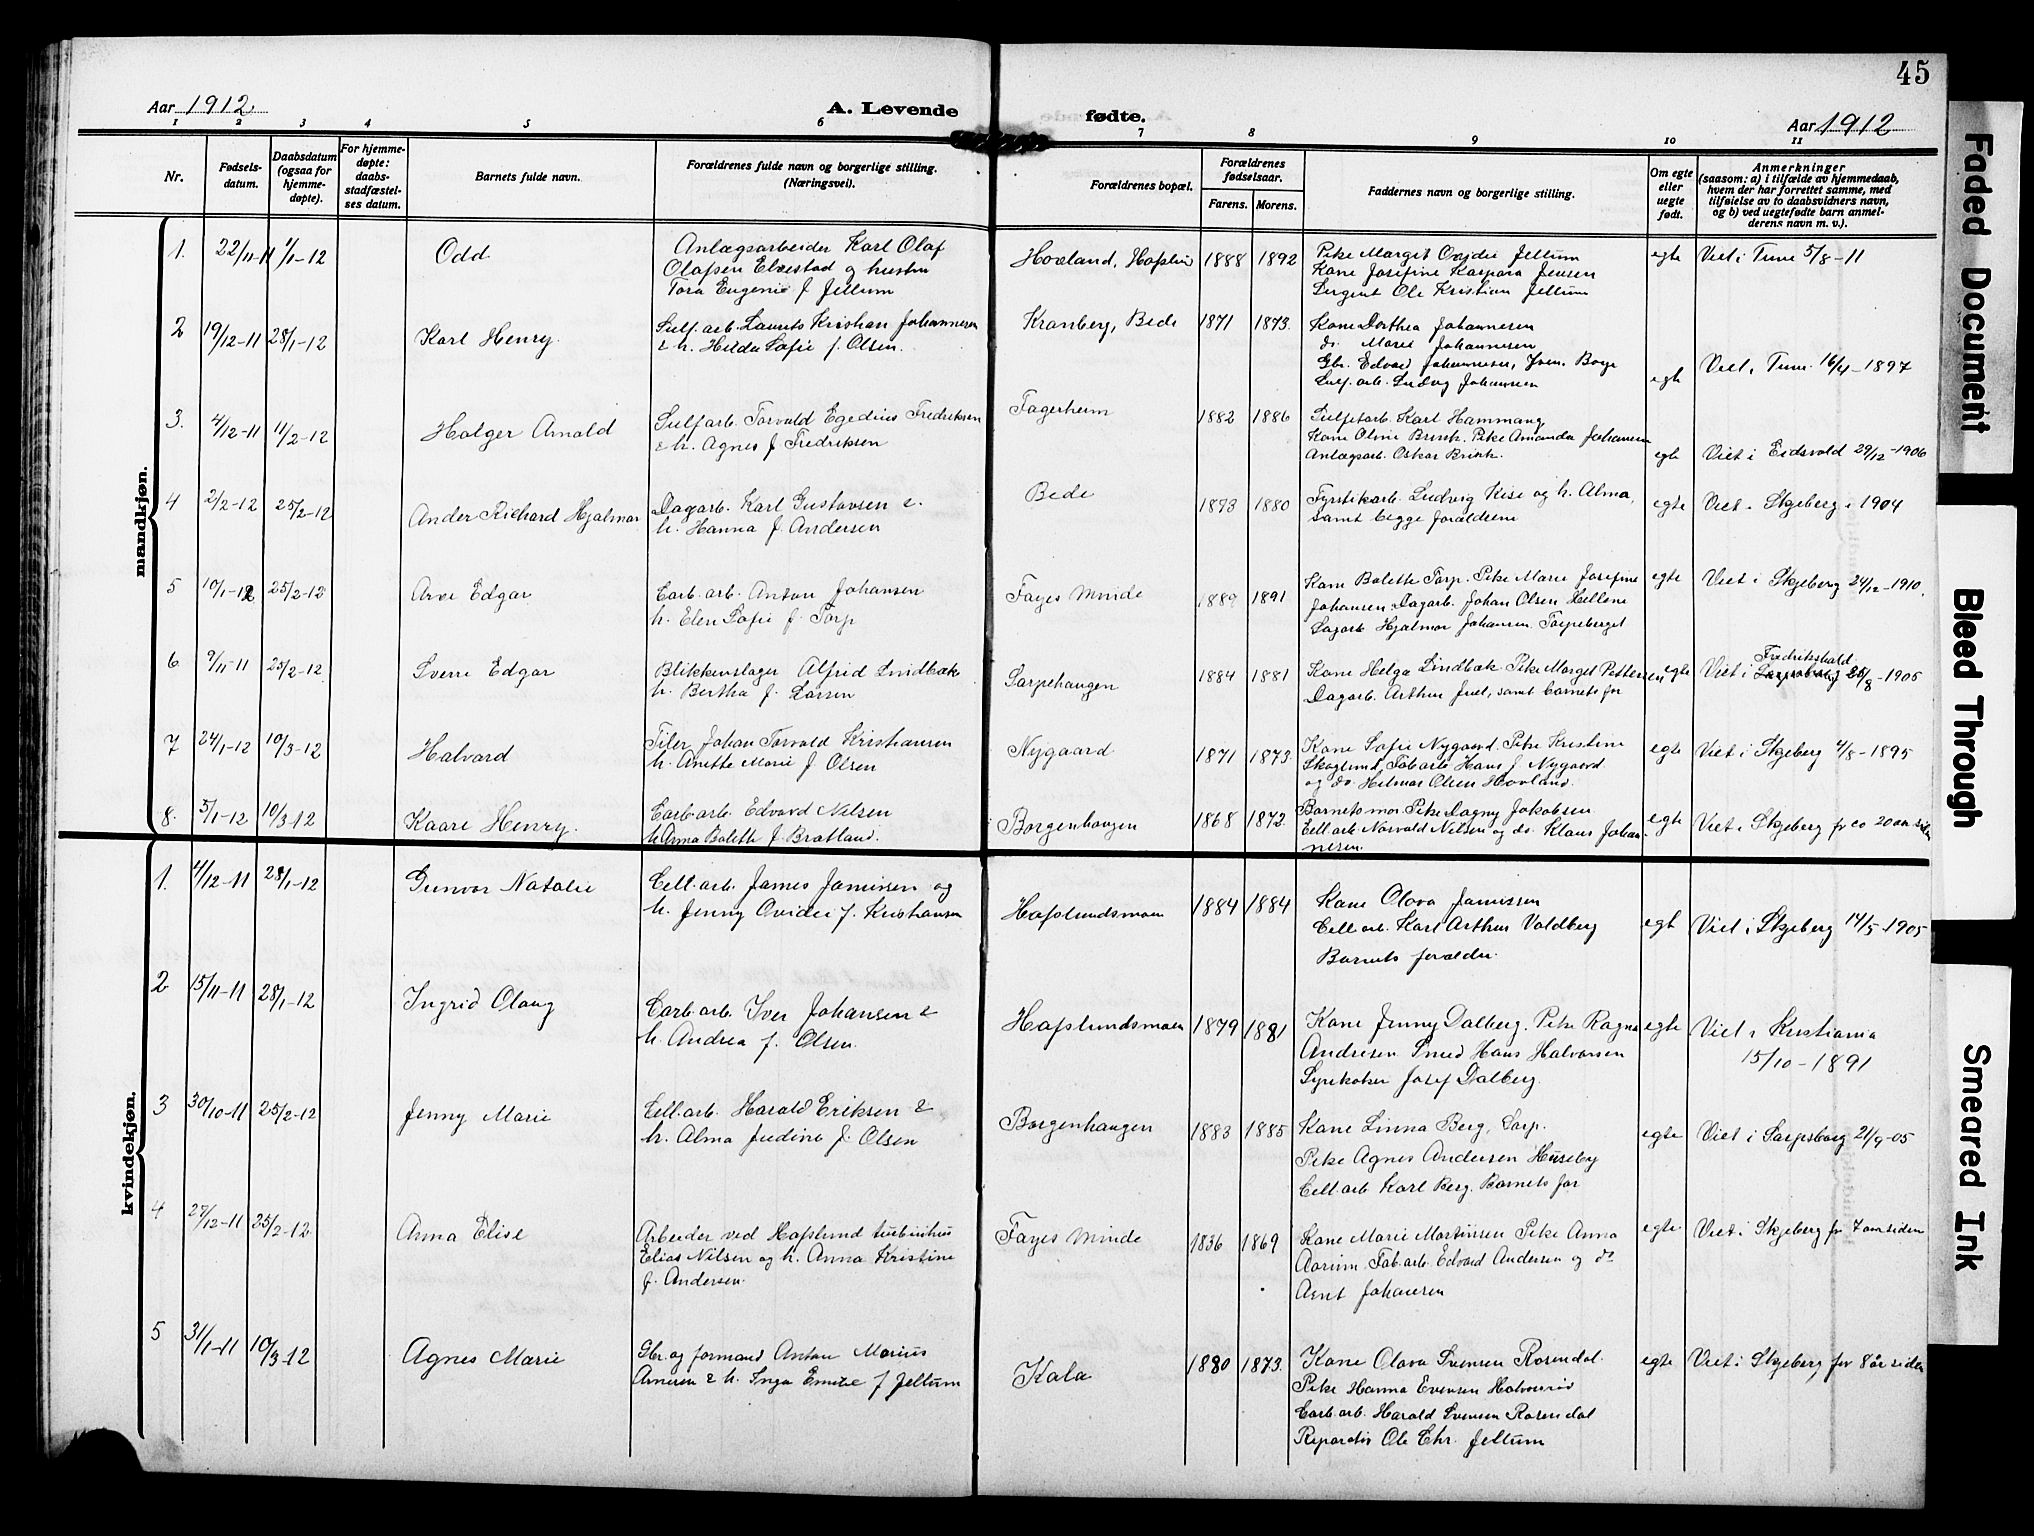 45
Aar 1912
A. Levende
fødte.
Aar 1912
1 2 3 4 5 6 7 8 9 10 11
Nr.
Fødsels-
datum.
Daabsdatum
(ogsaa for
hjemme-
døpte).
For hjemme-
døpte:
daabs-
stadfæstel-
ses datum.
Barnets fulde navn.
Forældrenes fulde navn og borgerlige stilling.
(Næringsvei).
Forældrenes bopæl.
Forældrenes
fødselsaar.
Farens. Morens.
Faddernes navn og borgerlige stilling.
Om egte
eller
uegte
født.
Anmerkninger
(saasom: a) i tilfælde av hjemmedaab,
hvem der har forrettet samme, med
tilføielse av to daabsvidners navn,
og b) ved uegtefødte barn anmel-
derens navn m. v.).
mandkjøn.
1. 22/11-11 1/1-12 Odd
Anlægsarbeider Karl Olaf
Olafsen Elvestad og hustru
Tora Eugenie f. Jellum
Hovland, Hafslund 1888 1892
Pike Margit Ovidie Jellum
Kone Josefine Kaspara Jensen
Sergent Ole Kristian Jellum
egte Viet i Tune 5/8-11
2 19/12-11 28/1-12 Karl Henry
Sulf.arb. Laurits Kristian Johannesen
& h. Hilda Sofie f. Olsen.
Kranberg, Bede 1871 1873.
Kone Dorthea Johannesen
do. Marie Johannesen
Gbr. Edvard Johannesen, Borge
Sulf.arb. Ludvig Johannesen
egte Viet i Tune 16/4-1897
3. 4/12-11 11/2-12 Holger Arnold
Sulf.arb. Torvald Egedius Fredriksen
& h. Agnes f. Fredriksen
Fagerheim 1882 1886
Sulfitarb. Karl Hammang
Kone Oline Brisk. Pike Amanda Johansen
Anlægsarb. Oskar Brisk.
egte Viet i Eidsvold 29/12-1906
4 2/2-12 25/2-12 Ander Richard Hjalmar
Dagarb. Karl Gustavsen &
h. Hanna f. Andersen
Bede 1873 1880
Fyrstikarb. Ludvig Kise og h. Alma,
samt begge forældrene
egte Viet i Skjeberg i 1904
5 10/1-12 25/2-12 Arve Edgar
Carb. arb. Anton Johansen
h. Elen Sofie f. Torp
Fayes Minde 1889 1891
Kone Bolette Torp. Pike Marie Josefine
Johansen. Dagarb. Johan Olsen Hellene
Sagarb. Hjalmar Johansen Torpeberget
egte Viet i Skjeberg 24/12-1910.
6 9/11-11 25/2-12 Sverre Edgar
Blikkenslager Alfrid Lindbæk
h. Bertha f. Larsen
Sarpehaugen 1884 1881
Kone Helga Lindbæk. Pike Margit Pettersen
Dagarb. Arthur Juel, samt barnets far
egte Viet i Fredrikshald
Sarpsborg 25/8-1905
7 24/1-12 10/3-12 Halvard
Filer Johan Torvald Kristiansen
h. Anette Marie f. Olsen
Nygaard 1871 1873
Kone Sofie Nygaard. Pike Kristine
Skoglund, Fab.arb. Hans J. Nygaard
og do. Helmer Olsen Hovland.
egte Viet i Skjeberg 4/8-1895
8. 5/1-12 10/3-12 Kaare Henry.
Carb.arb. Edvard Nilsen
h. Anna Bolette f. Bratland.
Borgenhaugen 1868 1872.
Barnets mor. Pike Dagny Jakobsen
Cell.arb. Norvald Nilsen og do. Klaus Johan-
nesen.
egte Viet i Skjeberg for co 20 aar siden
kvindekjøn.
1. 4/12-11 28/1-12 Gunvor Natalie
Cell.arb. James Jamissen og
h. Jenny Ovidie f. Kristiansen
Hafslundsmoen 1884 1884
Kone Olava Jamissen
Cell.arb. Karl Arthur Valdberg
Barnets forældre.
egte Viet i Skjeberg 14/5-1905
2 15/11-11 28/1-12 Ingrid Olaug
Carb.arb. Iver Johansen &
h. Andrea f. Olsen.
Hafslundsmoen 1879 1881
Kone Jenny Dalberg. Pike Ragna
Andresen Smed Hans Halvorsen
Syrekoker Josef Dalberg.
egte Viet i Kristiania
15/10-1891
3 30/10-11 25/2-12 Jenny Marie
Cell.arb. Harald Eriksen &
h. Alma Judine f. Olsen
Borgenhaugen 1883 1885
Kone Linna Berg, Sarp.
Pike Agnes Andersen Huseby
Cell.arb. Karl Berg. Barnets far
egte Viet i Sarpsborg 21/9-05
4 27/12-11 25/2-12 Anna Elise
Arbeider ved Hafslund turbinhus
Elias Nilsen og h. Anna Kristine
f. Andersen.
Fayes Minde 1836 1869
Kone Marie Martinsen Pike Anna
Aarum. Fab.arb. Edvard Andersen og do
Arnt Johansen
egte Viet i Skjeberg for 7 aar siden
5 31/1-11 10/3-12 Agnes Marie
Gbr. og formand Anton Marius
Arnesen & h. Inga Emilie f Jellum
Kala 1880 1873.
Kone Olava Svensen Rosendal.
Pike Hanna Evensen Halvorsrød
Carb.arb. Harald Svensen Rosendal
Reparatør Ole Chr. Jellum
egte Viet i Skjeberg for 8 år siden
Faded Document
Bleed Through
Smeared Ink